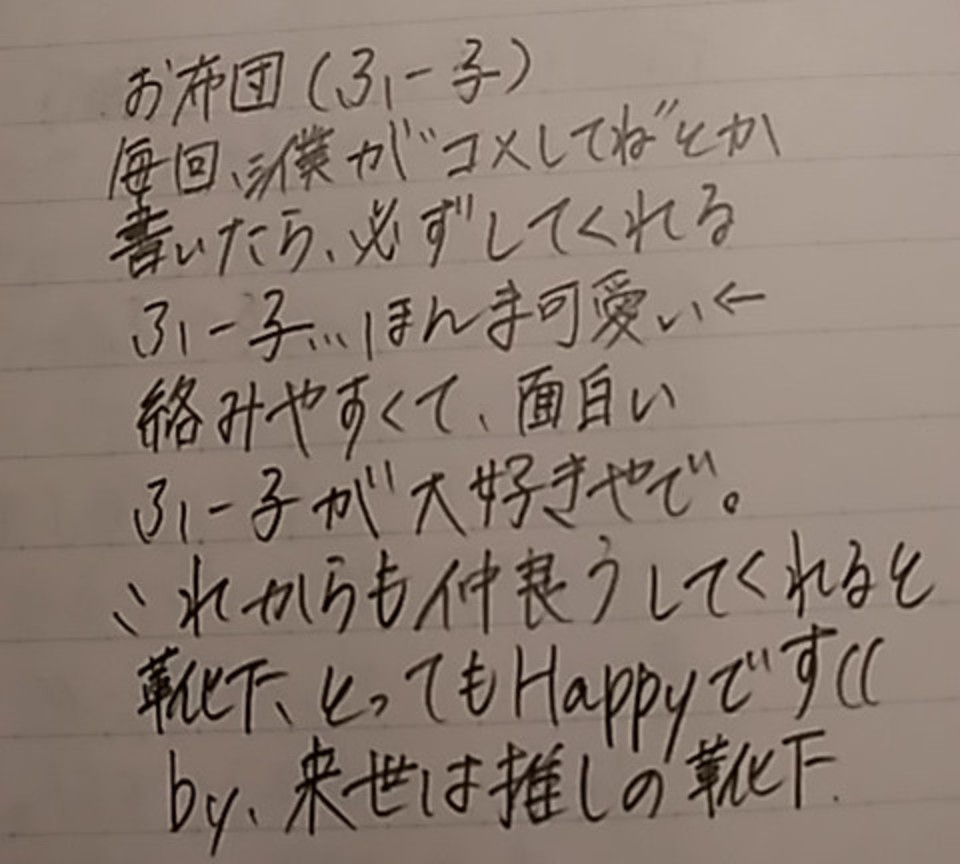 お布団(ふー子)
毎回、僕がコメしてねとか
書いたら、必ずしてくれる
ふー子...ほんま可愛い←
絡みやすくて、面白い
ふー子が大好きやで。
これからも仲良うしてくれると
靴下、とってもHappyです((
by、来世は推しの靴下.